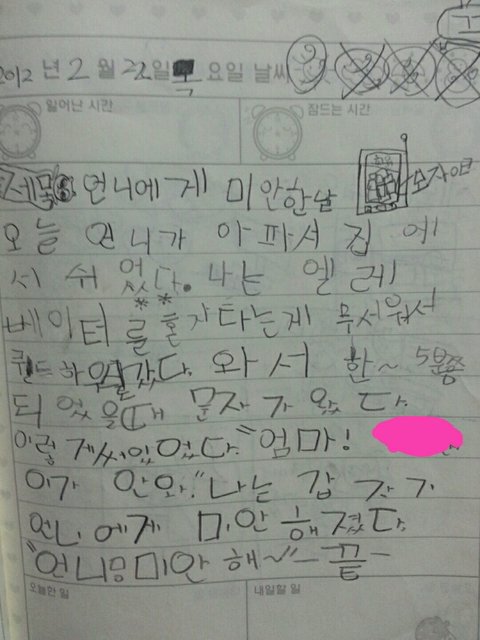 2012 년 2 월 22일 목 요일 날씨
일어난 시간 잠드는 시간
제목: 언니에게 미안한날
모자이크
오늘 언니가 아파서 집 에
서 쉬 었다. 나는 엘레
베이터를 혼자타는게 무서워서
하 갔다. 와서 한~ 5분쯤
되었을때 문자가 왔다.
이렇게써있었다. "엄마!
이가 안와." 나는 갑자기
언니에게 미안해졌다.
"언니 미안해~" -끝-
오늘한 일 내일할 일